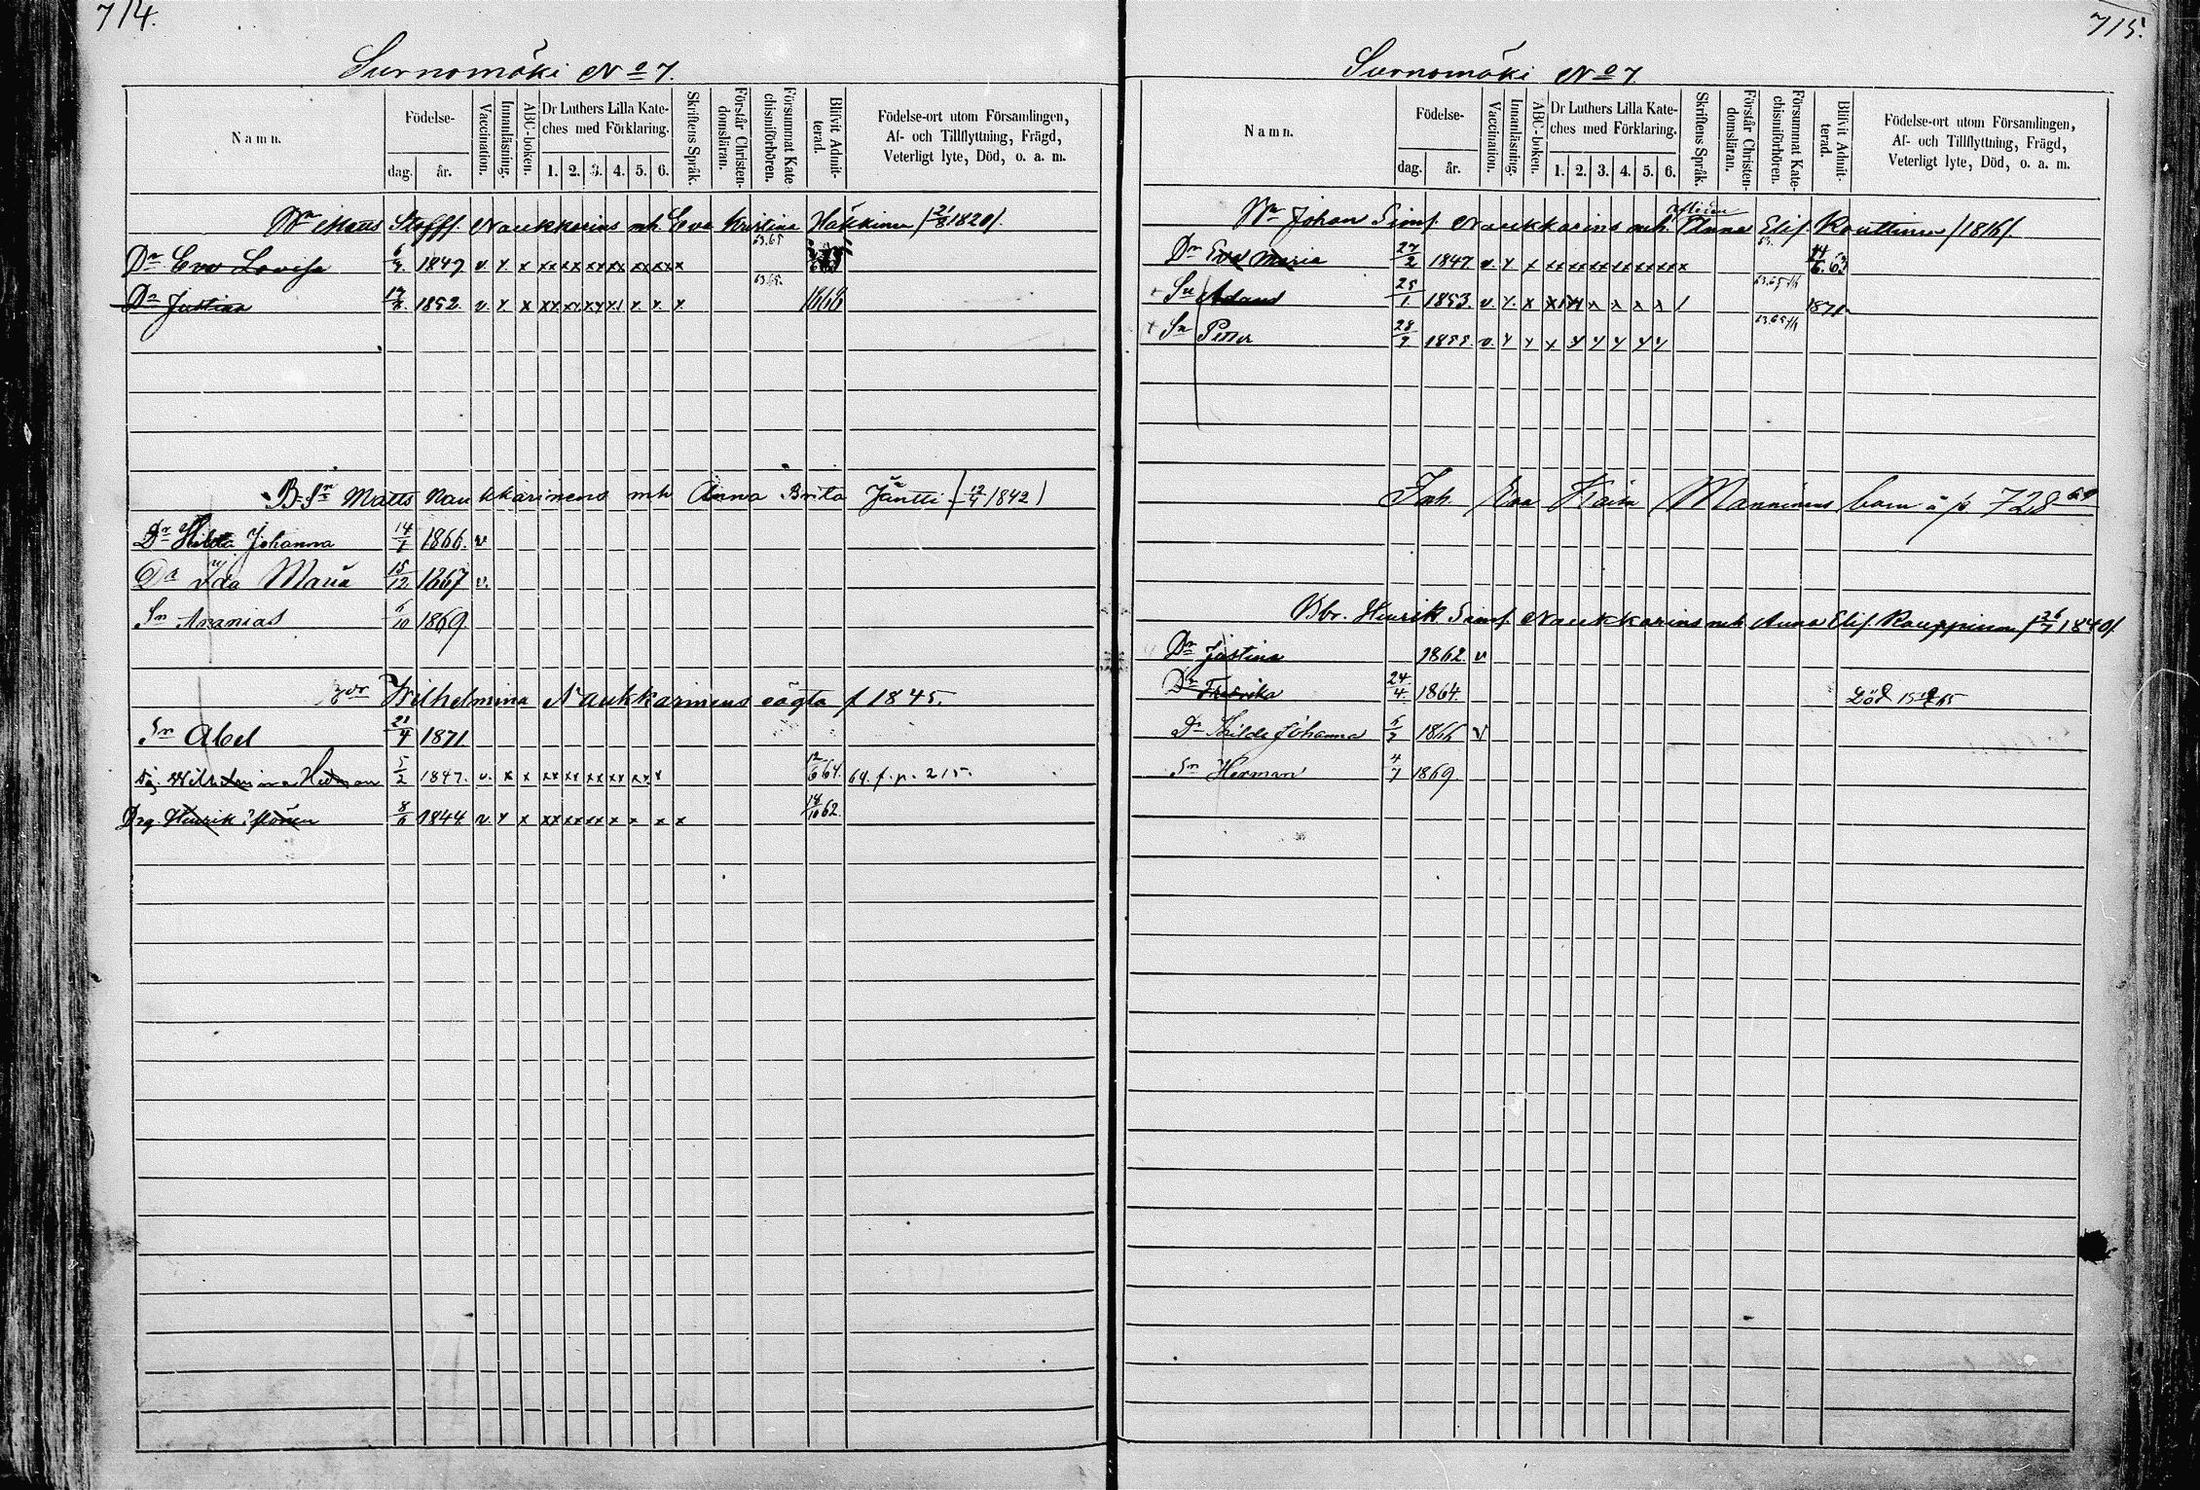 714.
Surnomäki No 7.
Namn.
Födelse-
dag.
år.
Vaccination.
Innanläsning.
ABC-boken.
Dr Luthers Lilla Kate-
ches med Förklaring.
1. 2. 3. 4. 5. 6.
Skriftens Språk.
Förstår Christen-
domsläran.
Försummat Kate
chismiförhören.
Blifvit Admit-
terad.
Födelse-ort utom Församlingen,
Af- och Tillflyttning, Frägd,
Veterligt lyte, Död, o. a. m.
Matts Stoff. Naukkarins mh. Eva Kristina Häkkinen /21/8 1820/.
63.65
Dr Eva Lovisa 1847 v. x x xx xx xx xx xx x x
63.65.
Dr Justina 1852 v x x xx xx xx x x. x. x 1868
B. Sn Matts Naukkarinens mh Anna Brita Jäntti (12/4 1842)
Dr Hilda Johanna 14/1 1866. v
Dr Ida Maria 15/12 1867 v.
Sn Ananias 6/10 1869.
Wilhelmina Naukkarinens oägta f 1845.
Sn Abel 21/4 1871
Wilhelmina Hedman 5/2 1847. v. x x xx xx xx xx xx x 12/6 64. 64. f. p. 215.
Drg. Henrik 8/6 1844 v. x x xx xx xx x x x x 18/10 62.
715.
Surnomäki No 7
Namn.
Födelse-
dag.
år.
Vaccination.
Innanläsning.
ABC-boken.
Dr Luthers Lilla Kate-
ches med Förklaring.
1. 2. 3. 4. 5. 6.
Skriftens Språk.
Förstår Christen-
domsläran.
Försummat Kate-
chismiförhören.
Blifvit Admit-
terad.
Födelse-ort utom Församlingen,
Af- och Tillflyttning, Frägd,
Veterligt lyte, Död, o. a. m.
afliden
Johan Simf. Naukkarins mh. Anna Elis. Kouttinen /1816/.
63.
Dr Eva Maria 27/2 1847 v. x x xx xx xx xx xx xx x
Sn Adam 25/1 1853. v. x. x x x x x x x 1 1871
Sn Petter 1855. v. x x x x x x x x
Inh. Eva Karin Manninens barn å p 728
Bbr. Henrik Simf. Naukkarins mh Anna Elis. Kauppinen /26/7 1840/.
Dr Justina 1862. v
Dr Fredrika 24/4. 1864. Död
Dr Hilda Johanna 1866 v
Sn Herman 4/7 1869.